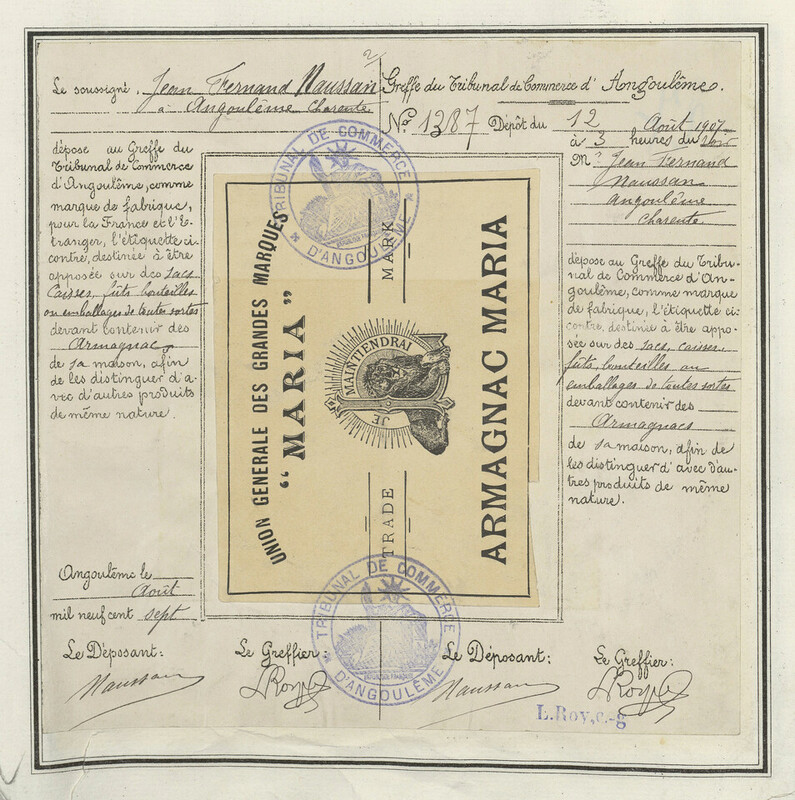 2
Le soussigné, Jean Fernand Naussan
à Angoulême Charente
dépose au Greffe du
Tribunal de Commerce
d'Angoulême, comme
marque de fabrique,
pour la France et l'É-
tranger, l'étiquette ci-
contre, destinée à être
apposée sur des sacs
Caisses, fûts bouteilles
ou emballages de toutes sortes
devant contenir des
Armagnacs
de sa maison, afin
de les distinguer d'a-
vec d'autres produits
de même nature.
Angoulême le
Août
mil neuf cent sept
Le Déposant:
Naussan
Le Greffier:
LRoy
TRIBUNAL DE COMMERCE
D'ANGOULÊME
UNION GENERALE DES GRANDES MARQUES
"MARIA"
TRADE MARK
JE MAINTIENDRAI
ARMAGNAC MARIA
TRIBUNAL DE COMMERCE
D'ANGOULÊME
Greffe du Tribunal de Commerce d'Angoulême.
No. 1387 Dépôt du 12 Août 1907
à 3 heures du
Mr. Jean Fernand
Naussan
Angoulême
Charente
dépose au Greffe du Tribu-
nal de Commerce d'An-
goulême, comme marque
de fabrique, l'étiquette ci-
contre, destinée à être appo-
sée sur des sacs, caisses,
fûts, bouteilles ou
emballages de toutes sortes
devant contenir des
Armagnacs
de sa maison, afin de
les distinguer d'avec d'au-
tres produits de même
nature.
Le Déposant:
Naussan
Le Greffier:
LRoy
L.Roy,c.-g